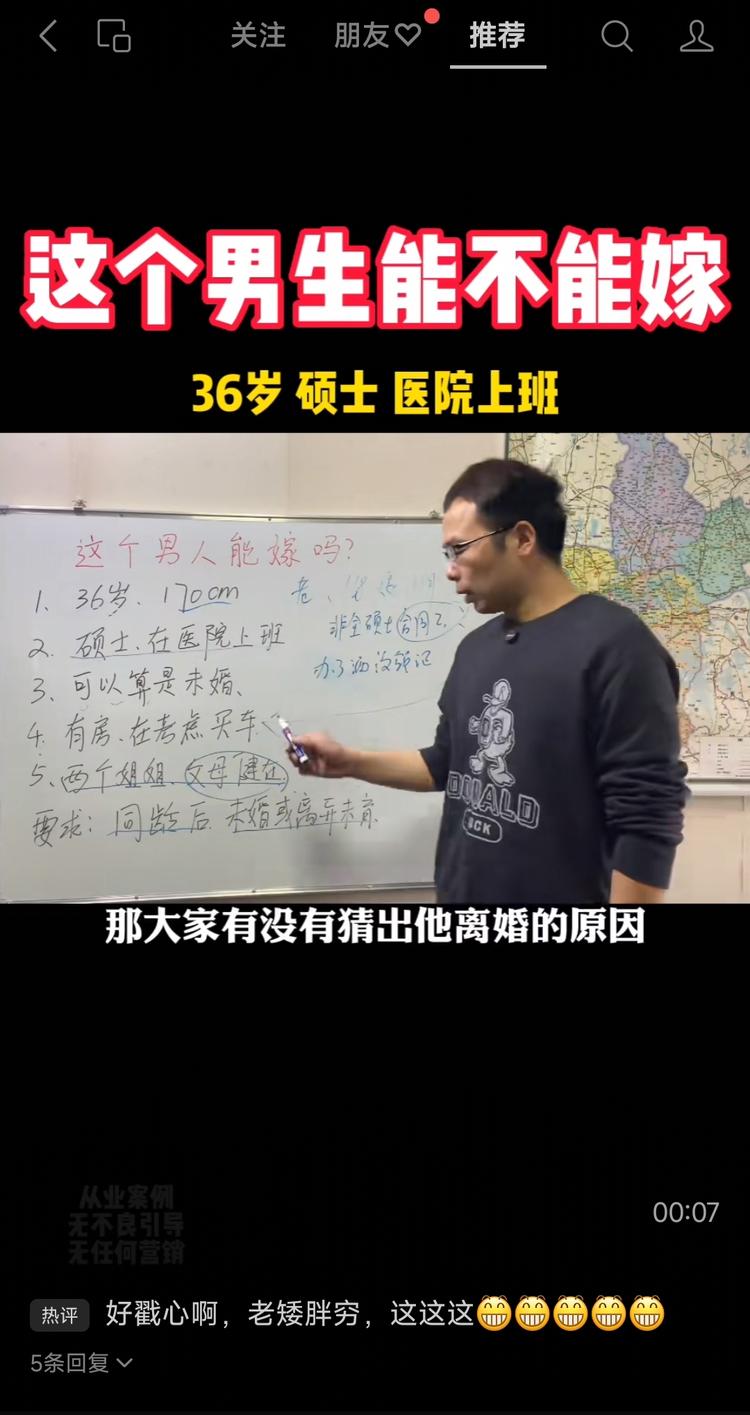 关注 朋友♡ 推荐
这个男生能不能嫁
36岁 硕士 医院上班
这个男人能嫁吗?
1、36岁、170cm
2、硕士、在医院上班
3、可以算是未婚、
4、有房、在考虑买车
5、两个姐姐、父母健在
要求:同龄后、未婚或离异未育
非全硕士 合同工
办了酒没领证
DONALD
DUCK
那大家有没有猜出他离婚的原因
从业案例
无不良引导
无任何营销
00:07
热评 好戳心啊，老矮胖穷，这这这😁😁😁😁😁
5条回复